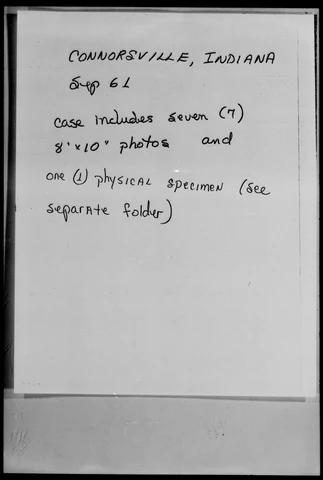 CONNORSVILLE, INDIANA
Sep 61
case includes seven (7)
8"x10" photos and
one (1) physical specimen (see
separate folder)